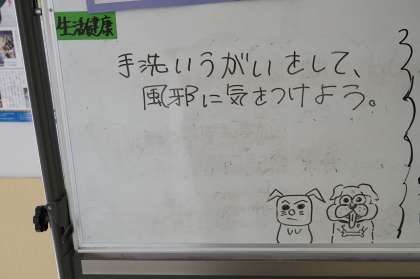 生活健康
手洗いうがいをして、
風邪に気をつけよう。